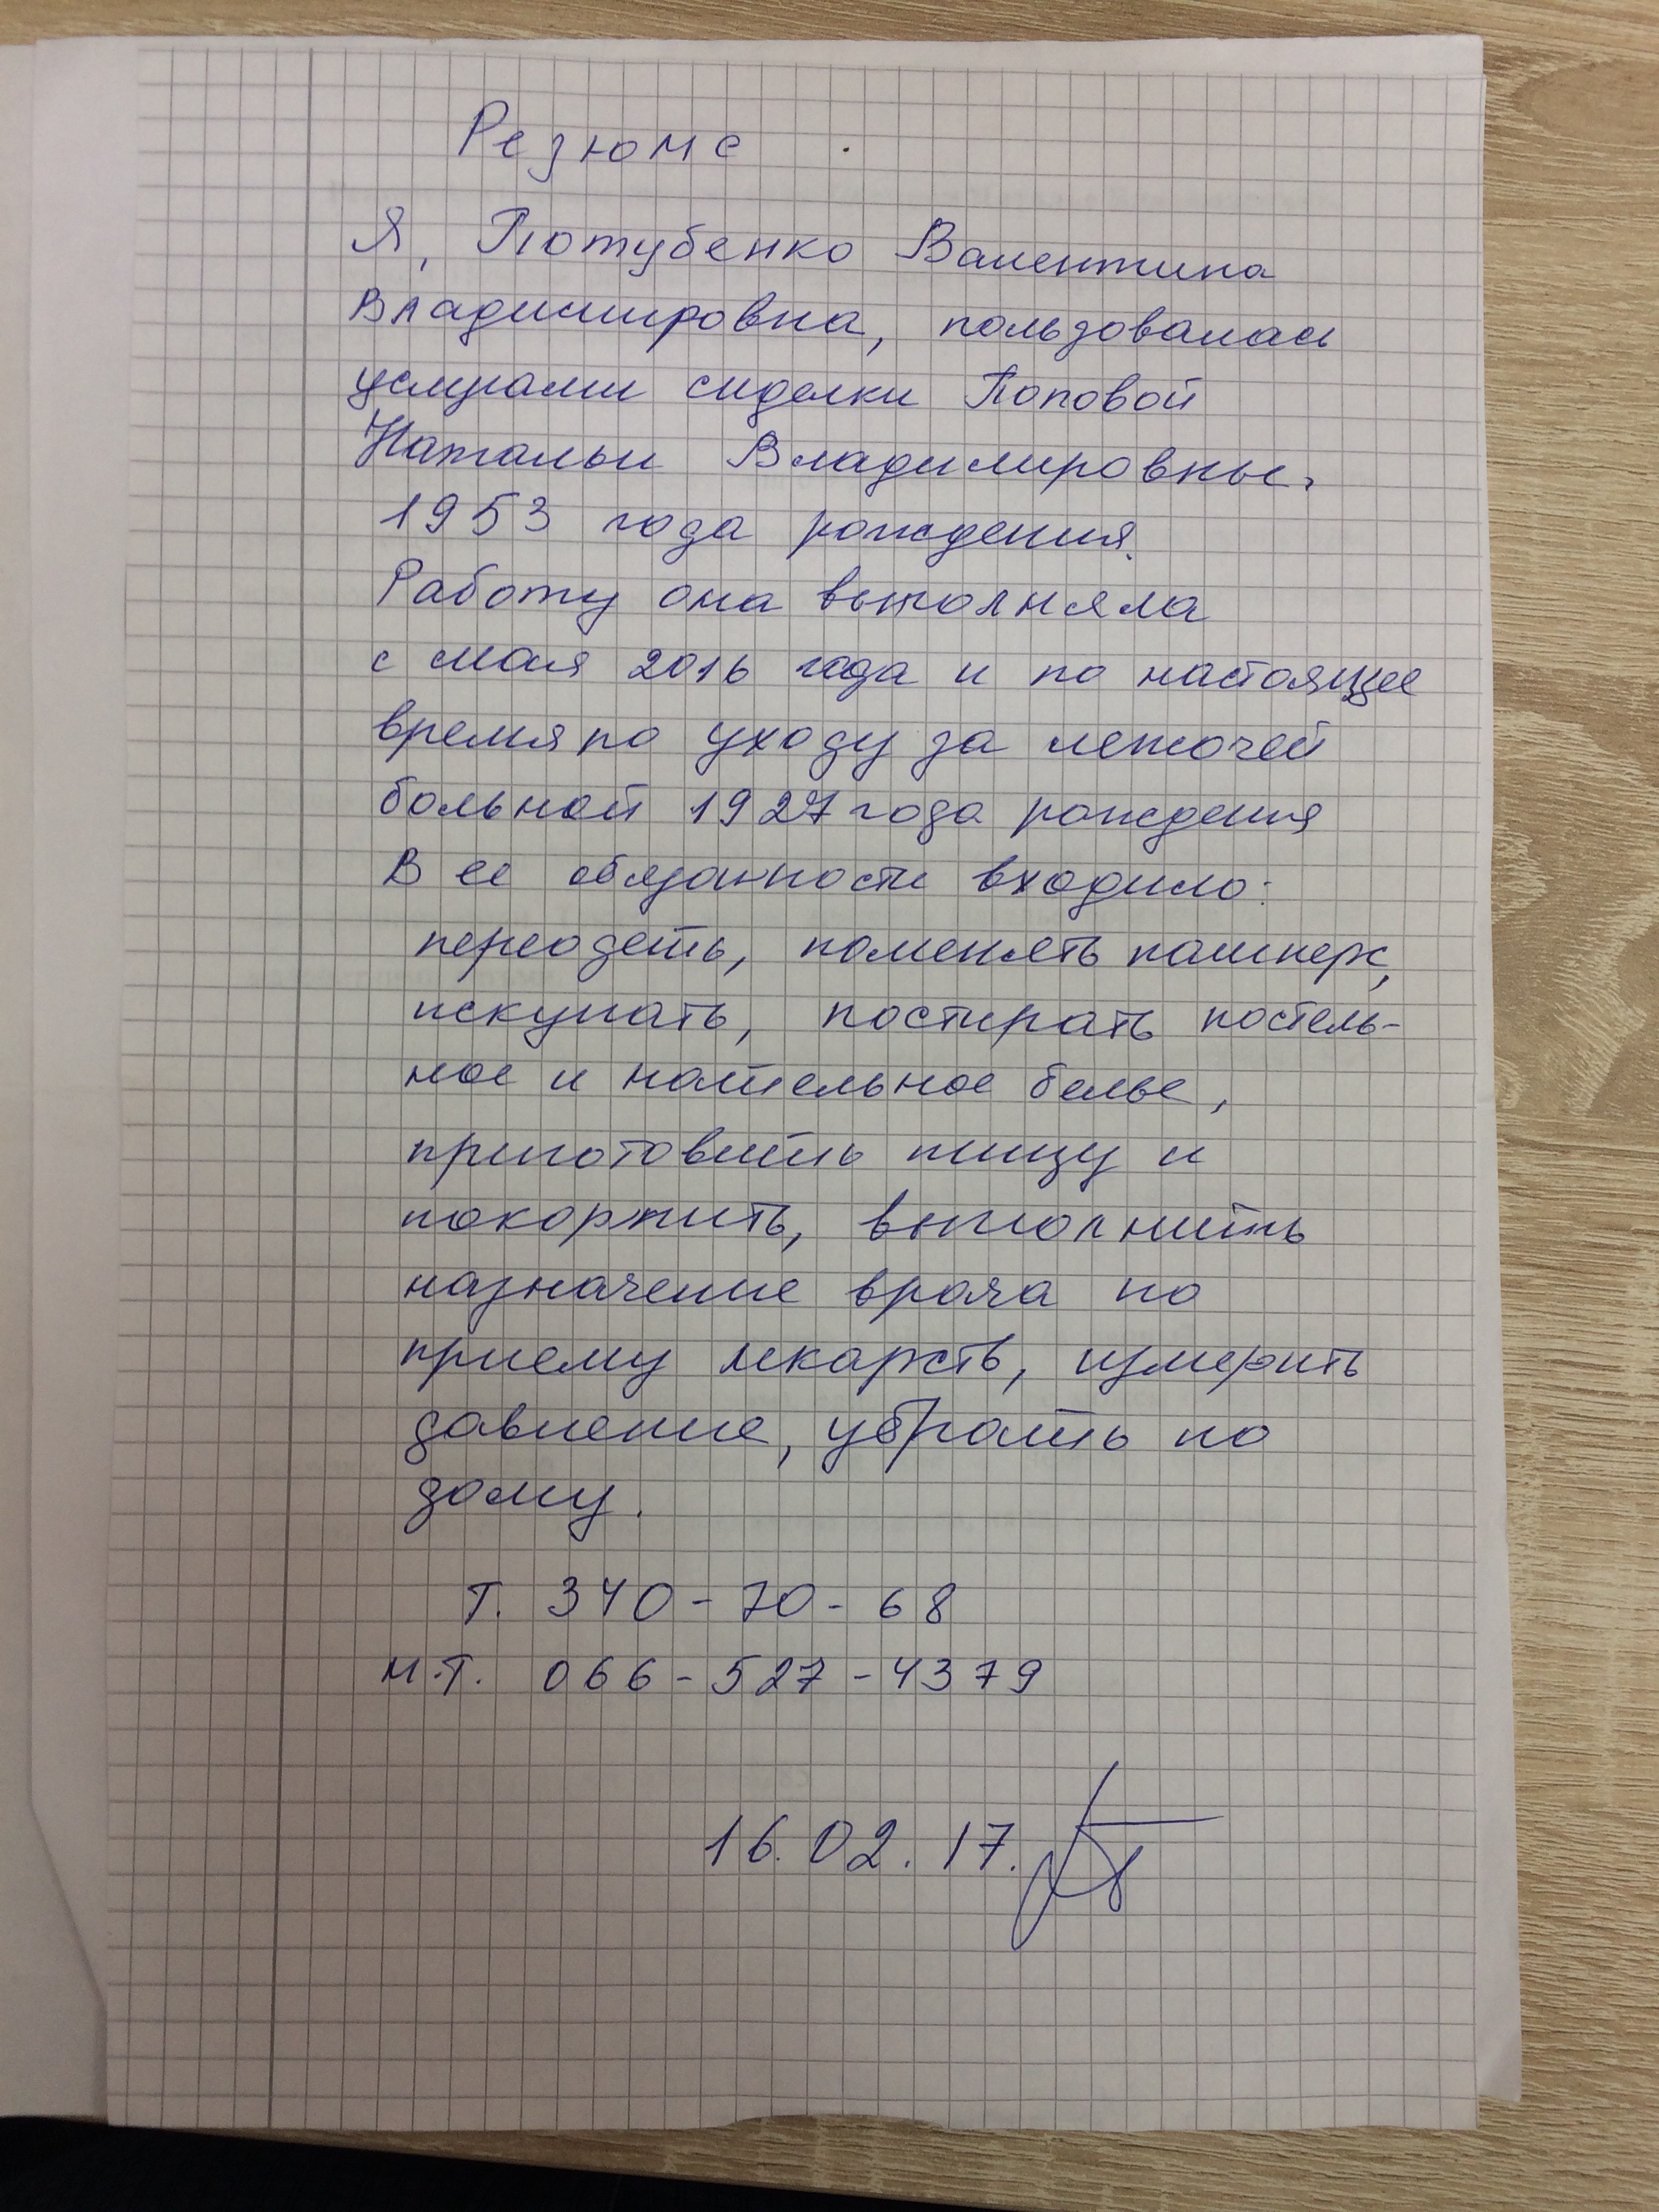 Резюме
Я, Потубенко Валентина
Владимировна, пользовалась
услугами сиделки Поповой
Натальи Владимировны.
1953 года рождения.
Работу она выполняла
с мая 2016 года и по настоящее
время по уходу за лежочей
больной 1927 года рождения
В ее обязанности входило:
переодеть, поменять памперс,
искупать, постирать постель-
ное и нательное белье,
приготовить пищу и
покормить, выполнить
назначение врача по
приему лекарств, измерить
давление, убрать по
дому.
Т. 340-70-68
М.Т. 066-527-4379
16.02.17.